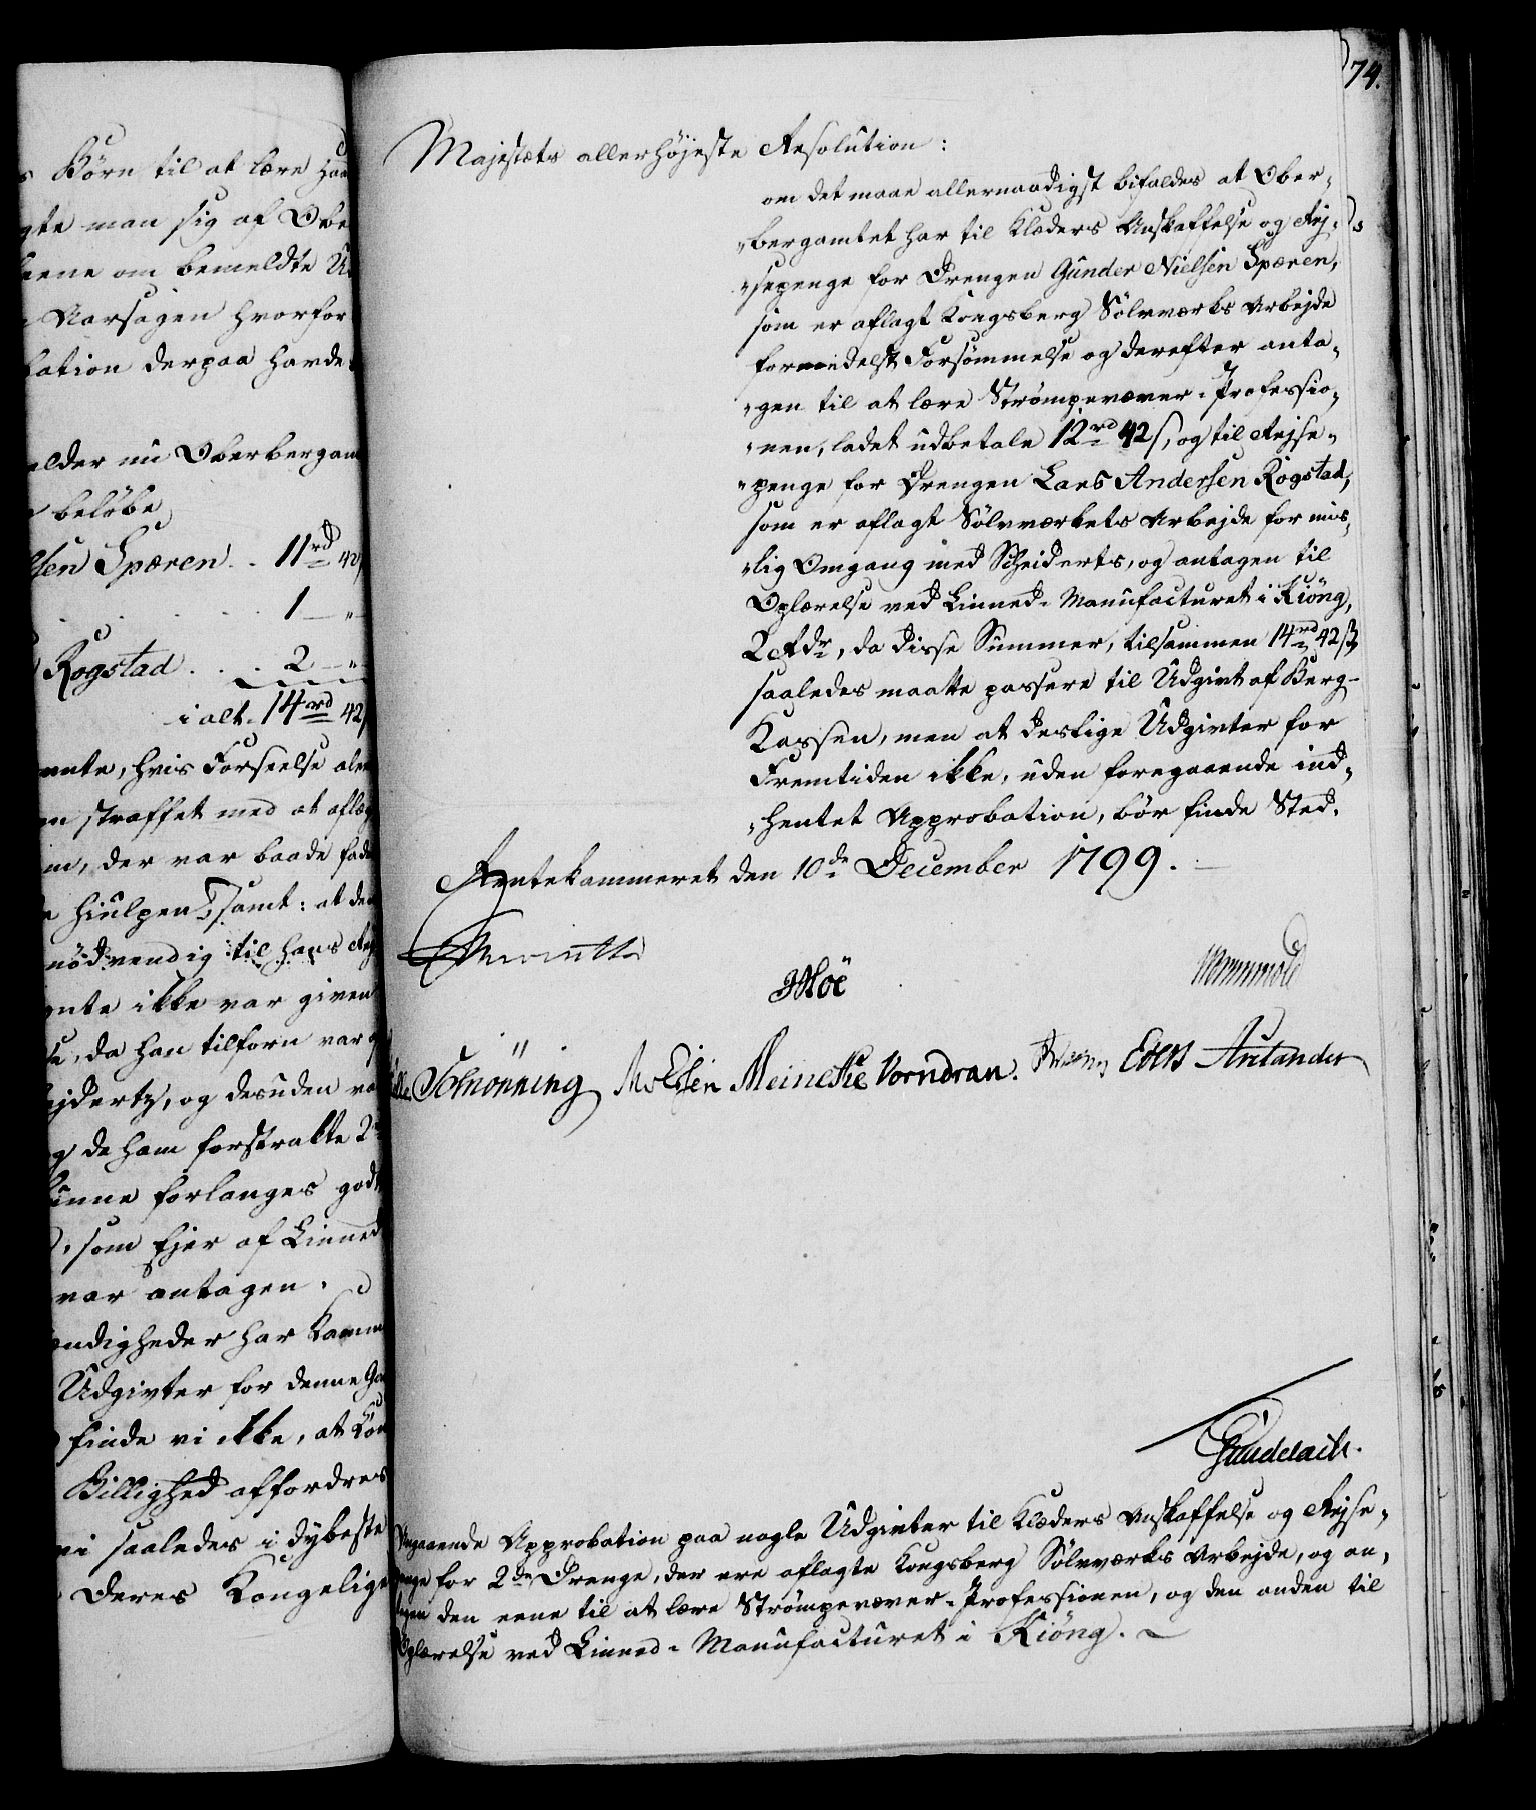 s Börn til at lære
gte man sig af Obe
om bemeldte
Aarsagen hvorfor
bation derpaa havde
elder nu Oberbergam
beløbe
lsen Spæren . . 11rd 42
1 — "
Rogstad . . . 2 — "
i alt 14rd 42
ente, hvis Forseelse
straffet med at aflæg
m, der var baade
hiulpen, samt: at de
nödvendig til hans
ente ikke var given
da han tilforn var
ejdertz, og desuden
de ham forstrakte 2
kunne forlanges godt
som Ejer af Linned
var antagen.
ændigheder har Kamm
Udgivter for denne
finde vi ikke, at
Billighed affordres
vi saaledes i dybeste
Deres Kongelige
74.
Majestæts allerhøjeste Resolution:
om det maae allernaadigst bifaldes at Ober-
bergamtet har til Klæders Anskaffelse og Rej-
sepenge for Drengen Gunder Nielsen Spæren,
som er aflagt Kongsberg Sölvværks Arbejde
formedelst Forsömmelse og derefter anta-
gen til at lære Strömpevæver-Professio-
nen, ladet udbetale 12rd 42s, og til Rejse-
penge for Drengen Lars Andersen Rogstad,
som er aflagt Sölvværkets Arbejde for mis-
lig Omgang med Scheidertz, og antagen til
Oplærelse ved Linned-Manufacturet i Kiöng,
2 Rdr, da disse Summer, tilsammen 14rd 42s,
saaledes maatte passere til Udgivt af Berg-
Kassen, men at deslige Udgivter for
Fremtiden ikke, uden foregaaende ind-
hentet Approbation, bör finde Sted.
Rentekammeret den 10de December 1799.
Moë
Schrönning Meincke Vorndran. Evers
Angaaende Approbation paa nogle Udgivter til Klæders Anskaffelse og Rejse-
penge for 2de Drenge, der ere aflagte Kongsberg Sölvværks Arbejde, og an-
tagen den eene til at lære Strömpevæver-Professionen, og den anden til
Oplærelse ved Linned-Manufacturet i Kiöng.